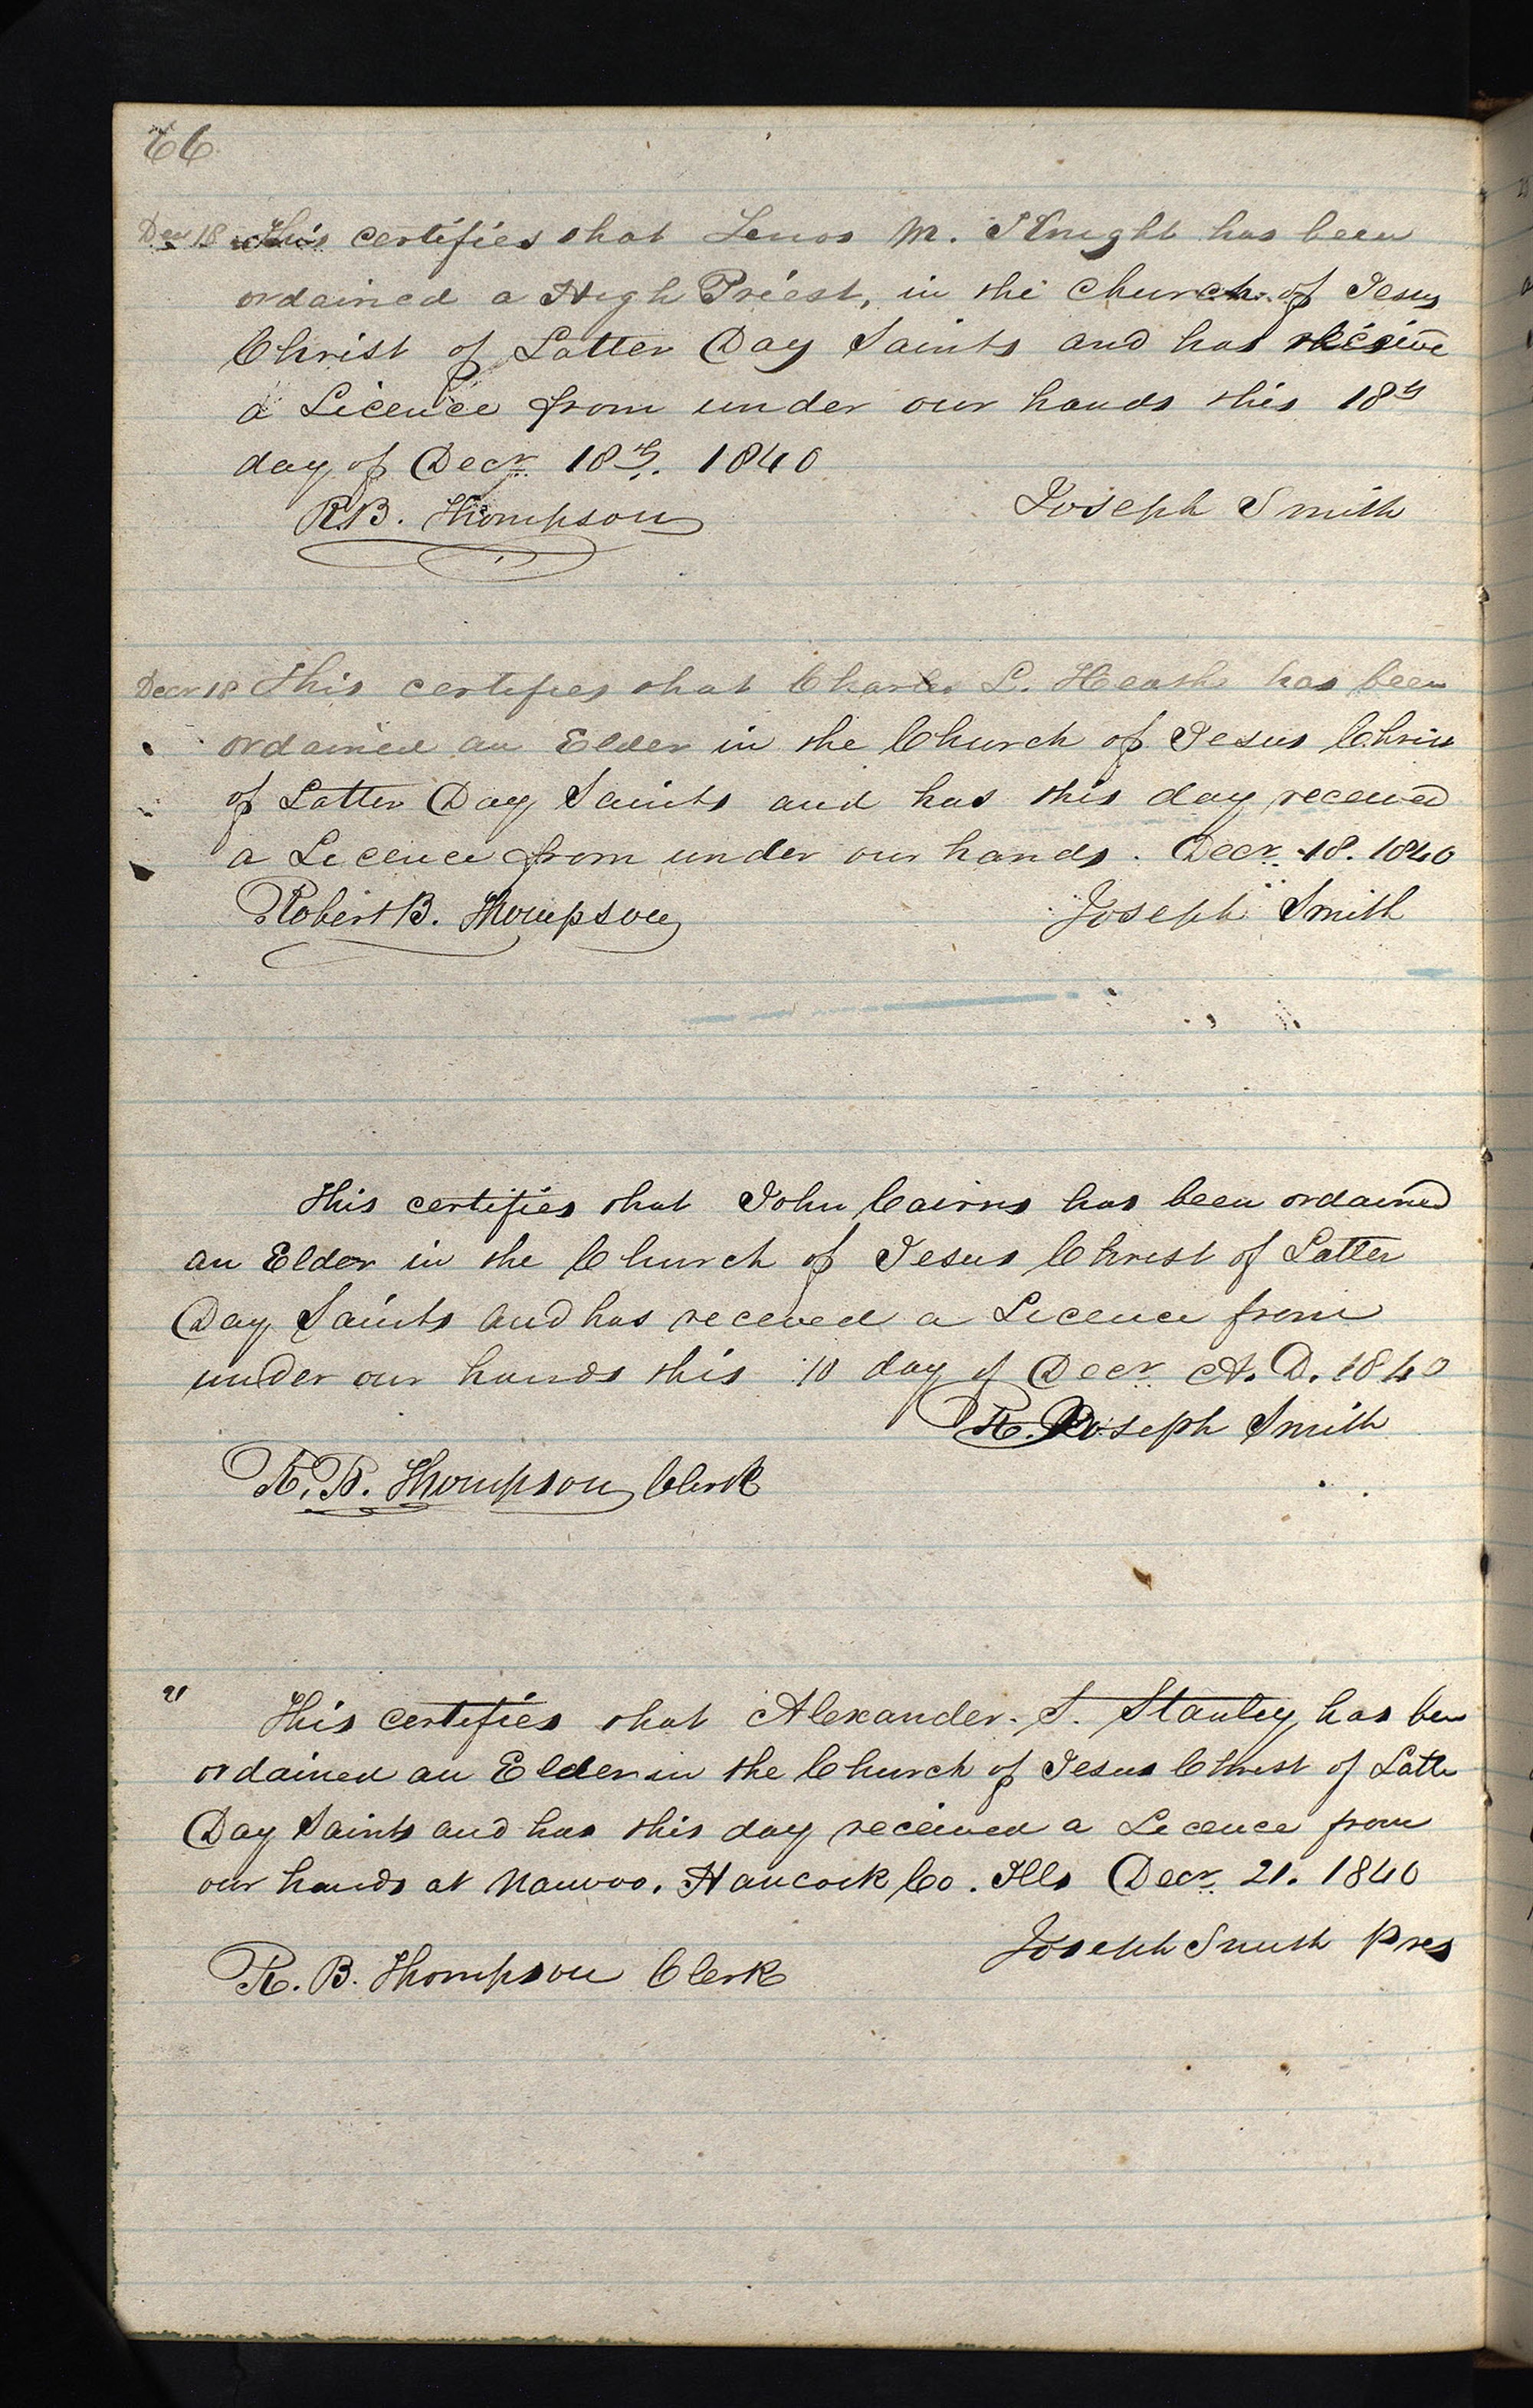 66
Decr 18 This certifies that Lenos M. Knight has been
ordained a High Priest, in the Church of Jesus
Christ of Latter Day Saints and has receive
a Licence from under our hands this 18th
day of Decr 18th. 1840
R.B. Thompson Joseph Smith
Decr 18 This certifies that Charles L. Heath has been
ordained an Elder in the Church of Jesus Christ
of Latter Day Saints and has this day received
a Licence from under our hands. Decr. 18. 1840
Robert B. Thompson Joseph Smith
This certifies that John Cairns has been ordained
an Elder in the Church of Jesus Christ of Latter
Day Saints and has received a Licence from
under our hands this 10 day of Decr A. D. 1840
Joseph Smith
R. B. Thompson Clerk
21 This certifies that Alexander. S. Stanley has been
ordained an Elder in the Church of Jesus Christ of Latter
Day Saints and has this day received a Licence from
our hands at Nauvoo. Hancock Co. Ills Decr 21. 1840
Joseph Smith Pres
R. B. Thompson Clerk